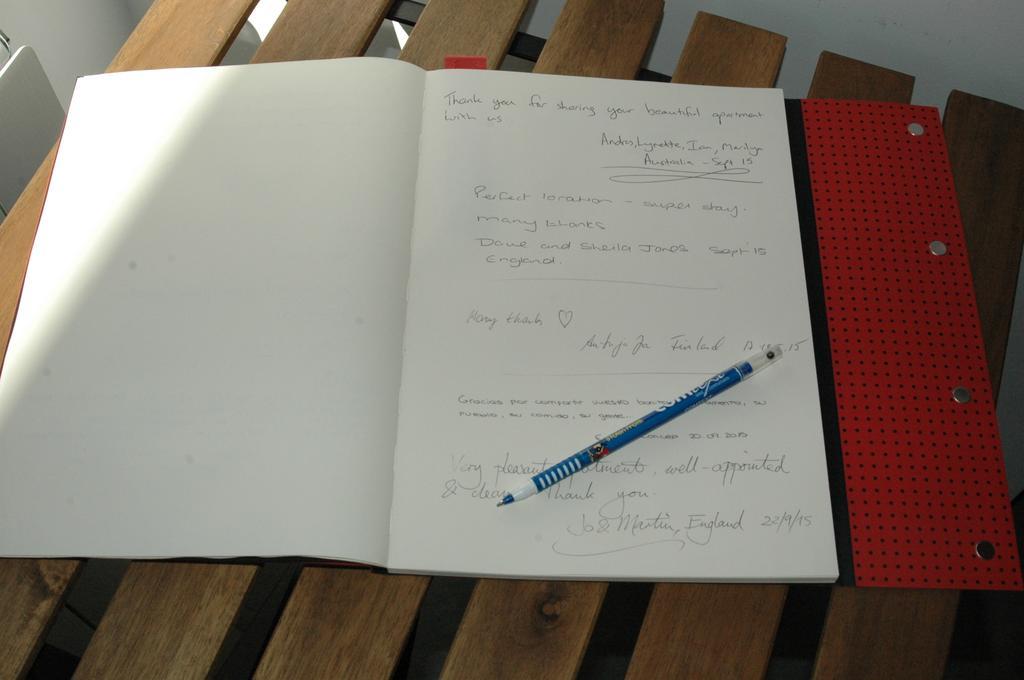 Thank you for sharing your beautiful apartment
with us
Andros, Lynette, Ian, Marilyn
Australia - Sept 15
Perfect location - super stay.
Many thanks
Dave and Sheila Jones Sept '15
England.
Many thanks ♡
Finland
Gracias por compartir vuestro, su
pueblo, su comida, su gente...
20.09.2015
Very pleasant, well-appointed
& Thank you.
Jo & Martin, England 22/9/15